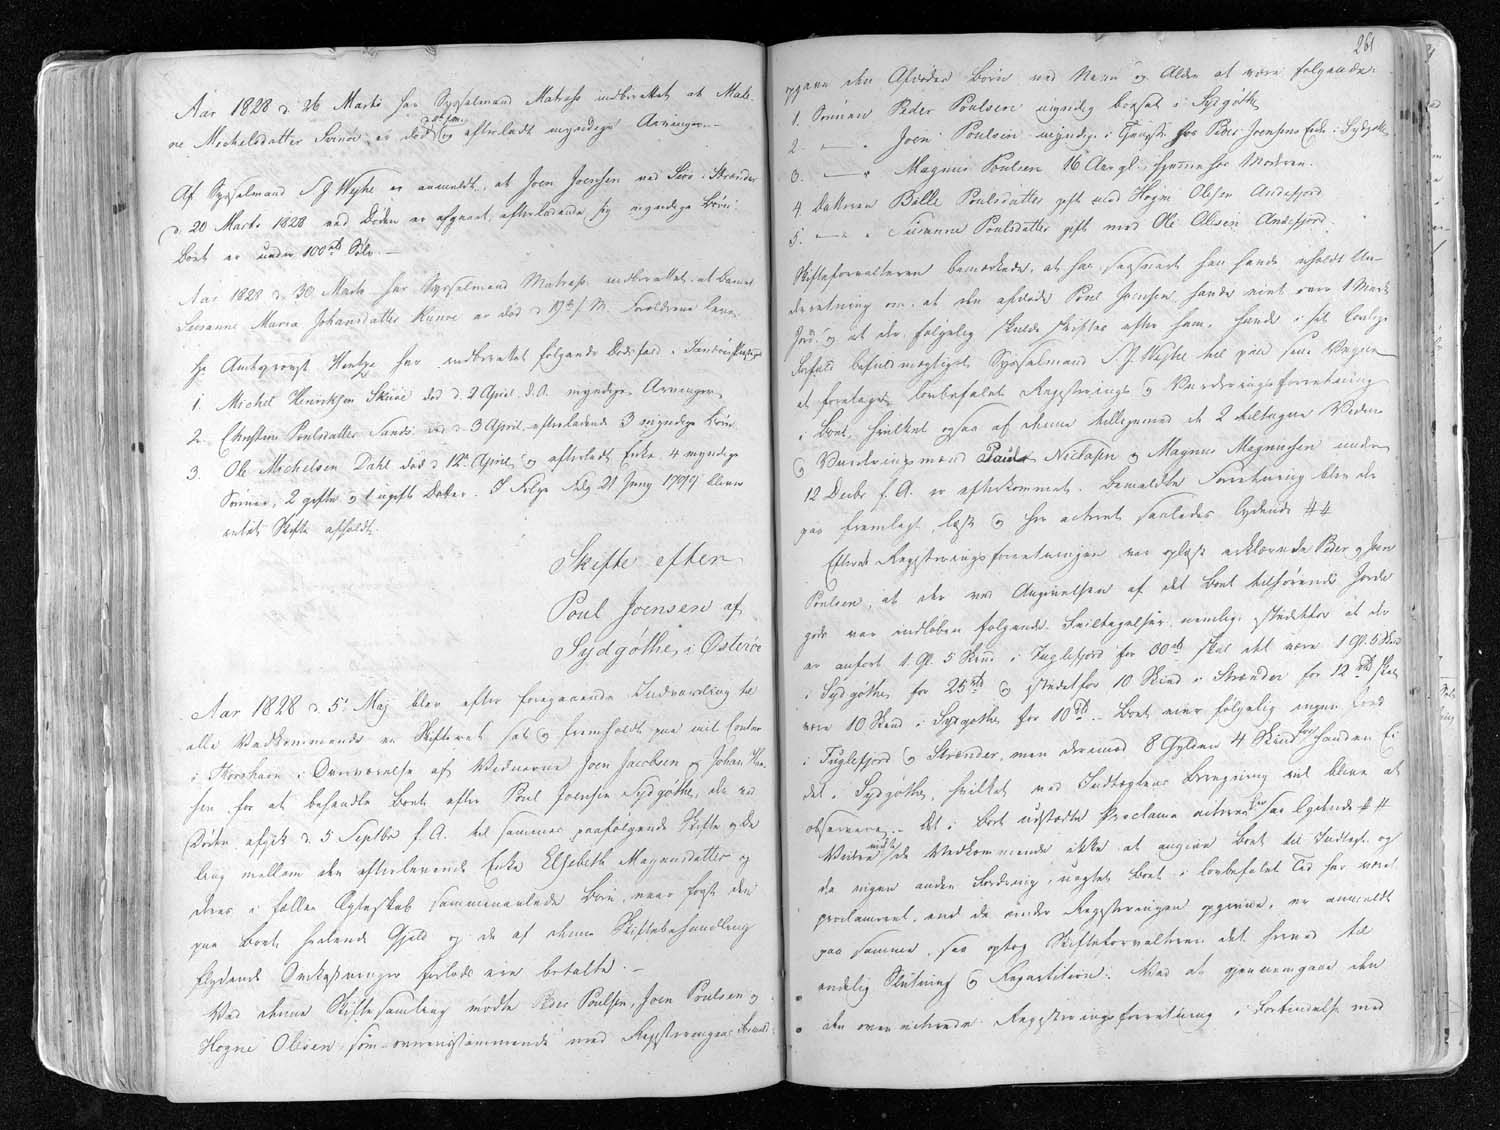 Aar 1828 d. 26 Martz har Sysselmand Matras indberettet at Male
ne Michelsdatter Sumbø er død og efterladt myndige Arvinger.
Af Sysselmand S. J. Weyhe er anmeldt, at Joen Joensen ved Siov i Strænder
d. 20 Martz 1828 ved Døden er afgaaet, efterladende sig myndige Børn.
Boet er under 100 rd Sølv. —
Aar 1828 d. 30 Martz har Sysselmand Matras indberettet, at Barnet
Susanne Maria Johansdatter Kunøe er død d. 19de s. M. Forældrene leve.
Hr Amtsprovst Hentze har indberettet følgende Dødsfald i Sandøe
1. Michel Henriksen Skuøe død d. 2 April d. A. myndige Arvinger
2. Christine Poulsdatter Sands død d. 3 April, efterladende 3 myndige Børn
3. Ole Michelsen Dahl død d. 12te April og efterladt Enke, 4 myndige
Sønner, 2 gifte og 1 ugift Datter. I Følge 21 Juny 1799 bliver
intet Skifte afholdt.
Skifte efter
Poul Joensen af
Sydgøthe i Østerøe
Aar 1828 d. 5 Maj blev efter foregaaende Indvarsling til
alle Vedkommende en Skifteret sat og fremholdt paa mit Contor
i Thorshavn i Overværelse af Vidnerne Joen Jacobsen og Johan Han
sen for at behandle Boet efter Poul Joensen Sydgøthe, der ved
Døden afgik d. 5 Septbr f. A. til sammes paafølgende Skifte og De
ling mellem den efterlevende Enke Elsebeth Magnusdatter og
deres i fælles Ægteskab sammenavlede Børn, naar først den
paa Boet heftende Gjeld og de af denne Skiftebehandling
flydende Omkostninger forlods ere betalte. —
Ved denne Skiftesamling mødte Peder Poulsen, Joen Poulsen og
Hogne Olesen, som overensstemmende med Registreringens
261
opgave den Afdødes Børn ved Navn og Alder at være følgende:
1. Sønnen Peder Poulsen myndig bosat i Sydgøthe
2. — " Joen Poulsen myndig i Tjeneste hos Peder Joensens Enke i Sydgøthe
3. — " Magnus Poulsen 16 Aar gl. hjemme hos Moderen.
4. Datteren Bille Poulsdatter gift med Hogne Olesen Andefjord
5. — " Susanne Poulsdatter gift med Ole Olesen Andefjord.
Skifteforvalteren bemærkede, at han, saasnart han havde erholdt Un
derretning om, at den afdøde Poul Joensen havde eiet over 1 Mark
Jord, og at der følgelig skulde skiftes efter ham, havde i sit lovlige
Forfald befuldmægtiget Sysselmand S. J. Weyhe til paa sine Vegne
at foretage lovbefalet Registrerings og Vurderingsforretning
i Boet, hvilket ogsaa af denne tilligemed de 2 tiltagne Vidner
og Vurderingsmænd Paul Niclasen og Magnus Magnussen under
12 Decbr f. A. er efterkommet. Bemeldte Forretning blev der
paa fremlagt, læst og her acteret saaledes lydende ##
Efterat Registreringsforretningen var oplæst erklærede Peder og Joen
Poulsen, at der ved Angivelsen af det Boet tilhørende Jorde
gods var indløben følgende Feiltagelser nemlig: istedetfor at der
er anført 1 Gl. 5 Skind i Fuglefjord for 60 rd skal det være 1 Gl. 5 Skind
i Sydgøthe for 25 rd og istedetfor 10 Skind i Strænder for 12 rd skal
være 10 Skind i Sydgøthe for 10 rd. Boet eier følgelig ingen Jord
i Fuglefjord og Strænder, men derimod 8 Gylden 4 Skind
i Sydgøthe, hvilket ved Indtægtens Beregning vil blive at
observere. — Det i Boet udstædte Proclama acteres her saa lydende ##
Videre vidste de Vedkommende ikke at angive Boet til Indtægt, og
da ingen anden Fordring, uagtet Boet i lovbefalet Tid har været
proclameret, end de under Registreringen opgivne, er anmeldt
paa samme, saa optog Skifteforvalteren det hermed til
endelig Slutning og Repartition. Med at gjennemgaae den
den overacterede Registreringsforretning i Forbindelse med